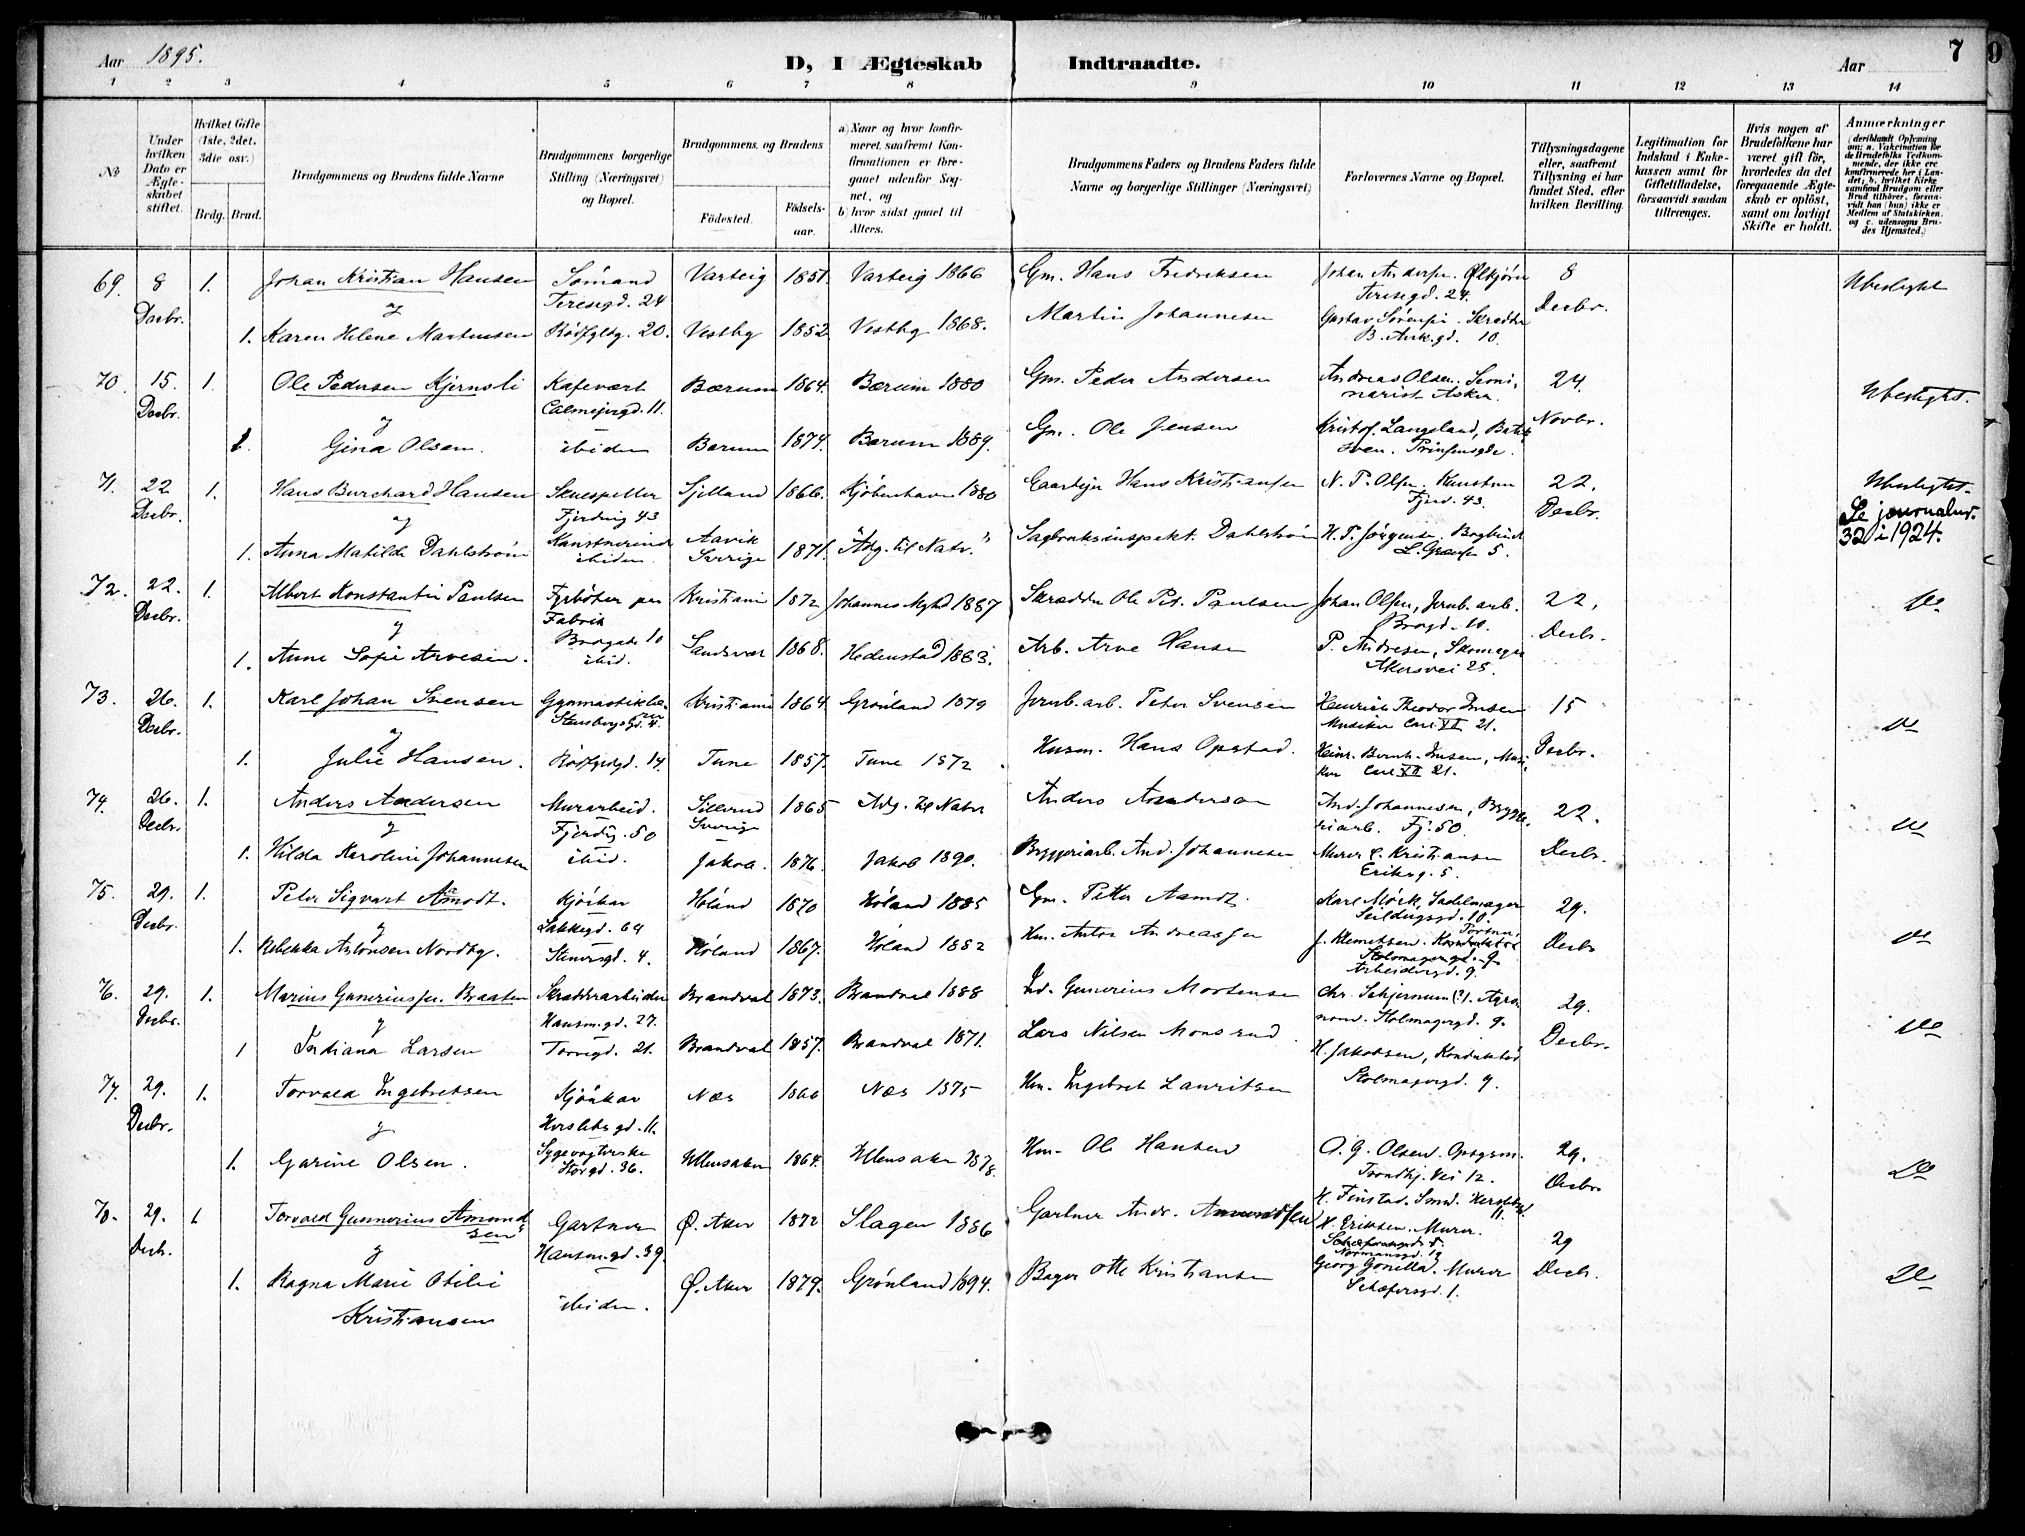 Aar 1895. D, I Ægteskab Indtraadte. Aar 7
1 2 3 4 5 6 7 8 9 10 11 12 13 14
№
Under hvilken Dato er Ægteskabet stiftet.
Hvilket Gifte (1ste, 2det, 3die osv.)
Brdg. Brud.
Brudgommens og Brudens fulde Navne
Brudgommens borgerlige Stilling (Næringsvei) og Bopæl.
Brudgommens og Brudens
Födested. Födsels-aar.
a) Naar og hvor konfirmeret, saafremt Konfirmationen er foregaaet udenfor Sognet, og
b) hvor sidst gaaet til Alters.
Brudgommens Faders og Brudens Faders fulde Navne og borgerlige Stillinger (Næringsvei)
Forlovernes Navne og Bopæl.
Tillysningsdagene eller, saafremt Tillysning ei har fundet Sted, efter hvilken Bevilling.
Legitimation for Indskud i Enkekassen samt for Giftetilladelse, forsaavidt saadan tiltrænges.
Hvis nogen af Brudefolkene har været gift før, hvorledes da det foregaaende Ægteskab er oplöst, samt om lovligt Skifte er holdt.
Anmærkninger (deriblandt Oplysning om: a. Vakcination for de Brudefolks Vedkommende, der ikke ere konfirmerede her i Landet; b. hvilket Kirkesamfund Brudgom eller Brud tilhører, forsaavidt han (hun) ikke er Medlem af Statskirken, og c. udensogns Brudes Hjemsted.)
69. 8 1. Johan Kristian Hansen Sømand Varteig 1851. Varteig 1866 Gm. Hans Fredriksen Johan Andersen 8 Ubeslægtet
Decbr. og Teresegd. 24 Teresegd. 24. Decbr.
1. Karen Helene Martinsen 20. Vestby 1852 Vestby 1868. Martin Johannesen Gustav Sørensen. Skrædder
10.
70. 15. 1. Ole Pedersen Kjernsli Kafevært Bærum 1864. Bærum 1880 Gm. Peder Andersen Andreas Olsen. Semi- 24. Ubeslægtet.
Decbr. og Calmeyergd. 11. narist Asker. Novbr.
1. Gina Olsen. ibiden Bærum 1874. Bærum 1889. Gm. Ole Jensen Kristof. Langeland,
Prinsensgde.
71. 22 1. Hans Burchard Hansen Skuespiller Sjelland 1866. Kjøbenhavn 1880 Hans Kristiansen N. P. Olsen. 22. Ubeslægtet.
Decbr. og Fjerding 43 Fjerd. 43. Decbr. Se journalnr.
1. Anna Matilde Dahlstrøm Kunstnerinde Aavik 1871. "Adg. til Natv." Sagbruksinspekt. Dahlstrøm H. P. Jørgensen Bogbind 32 i 1924.
ibiden. Sverige 5.
72. 22. 1. Albert Konstantin Paulsen Fyrbøter paa Kristiania 1872 Johannes 1887 Skrædder Ole Pet. Paulsen Johan Olsen, Jernb. arb. 22. Do
Decbr. og Fabrik Brogd. 10. Decbr.
1. Anne Sofie Arvesen. Brogate 10 Sandsvær 1868. Hedenstad 1883. Arb. Arve Hansen P. Andresen, Skomager
ibid. Akersvei 25.
73. 26. 1. Karl Johan Svensen Gymnastiklærer Kristiania 1864 Grønland 1879 Jernb. arb. Peter Svensen Heinrich Theodor 15 Do
Decbr. og Stensbergsgd. 4. Musiker Carl XII 21. Decbr.
1. Julie Hansen. 14. Tune 1857. Tune 1872. Husm. Hans Opstad. Heinr. Bernh. Musi-
ker Carl XII 21.
74. 26. 1. Anders Andersen Murarbeid. Sillerud 1865 Adg. til Natv Anders Anderson And. Johannesen, Brygge- 22. Do
Decbr. og Fjerdig. 50 Sverige riarb. Fj. 50. Decbr.
1. Hilda Karoline Johannesen ibid. Jakob. 1876. Jakob 1890. Bryggeriarb. And. Johannesen Murer C. Kristiansen
Eriksg. 5.
75. 29. 1. Peter Sigvart Aamodt. Kjøskar Høland 1870 Høland 1885 Gm. Petter Aamdt. Karl Mørk, Sadelmager 29. Do
Decbr. og Lakkegd. 64 10. Decbr
1. Rebekka Antonsen Nordby. Stenersgd. 4. Høland 1867. Høland 1882 Hm. Anton Andreassen J. Klemetsen. Konduktør
9.
Arbeidergd. 9.
76. 29. 1. Marius Gunerius Braaten Skrædderarbeider Brandval 1873. Brandval 1888 Gunerius Mortensen Chr. (?). Agro- 29. Do
Decbr. og Hausm. gd. 27. nom. Stolmagergd. 9. Decbr.
1 Terdiana Larsen Torvegd. 21. Brandval 1857. Brandval 1871. Lars Nilsen Monsrud. H. Jakobsen, Konduktør
Stolmagergd. 9.
77. 29. 1. Torvald Ingebretsen Kjøskar Næs 1860 Næs 1875 Hm. Ingebret Lauritsen
Decbr. og Herslebsgd. 11.
1. Garine Olsen. Sygevogterske Ullensaker 1864. Ullensaker 1878. Hm. Ole Hansen O. G. Olsen. 29. Do
Storgd. 36. Trondhj. Vei 12. Decbr
H. Finstad. Smed. 11.
78. 29. 1 Torvald Gunnerius Amund- Gartner Ø. Aker 1872 Slagen 1886 Gartner Andr. Amundsen H. Eriksen. Murer. 29
Decb. sen Hausm. gd. 39. Normansgd. Decb.
og
1. Ragna Marie Otilie ibiden. Ø. Aker 1874. Grønland 1894. Bager Otto Kristiansen Georg Murer Do
Kristiansen Schæfersgd. 1.